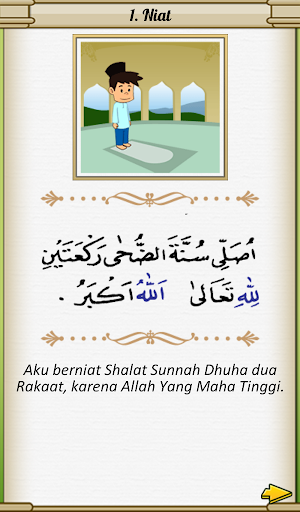 1. Niat
اُصَلِّى سُنَّةَ الضُّحٰى رَكْعَتَيْنِ
لِلّٰهِ تَعَالىٰ اَللّٰهُ اَكْبَرُ .
Aku berniat Shalat Sunnah Dhuha dua
Rakaat, karena Allah Yang Maha Tinggi.